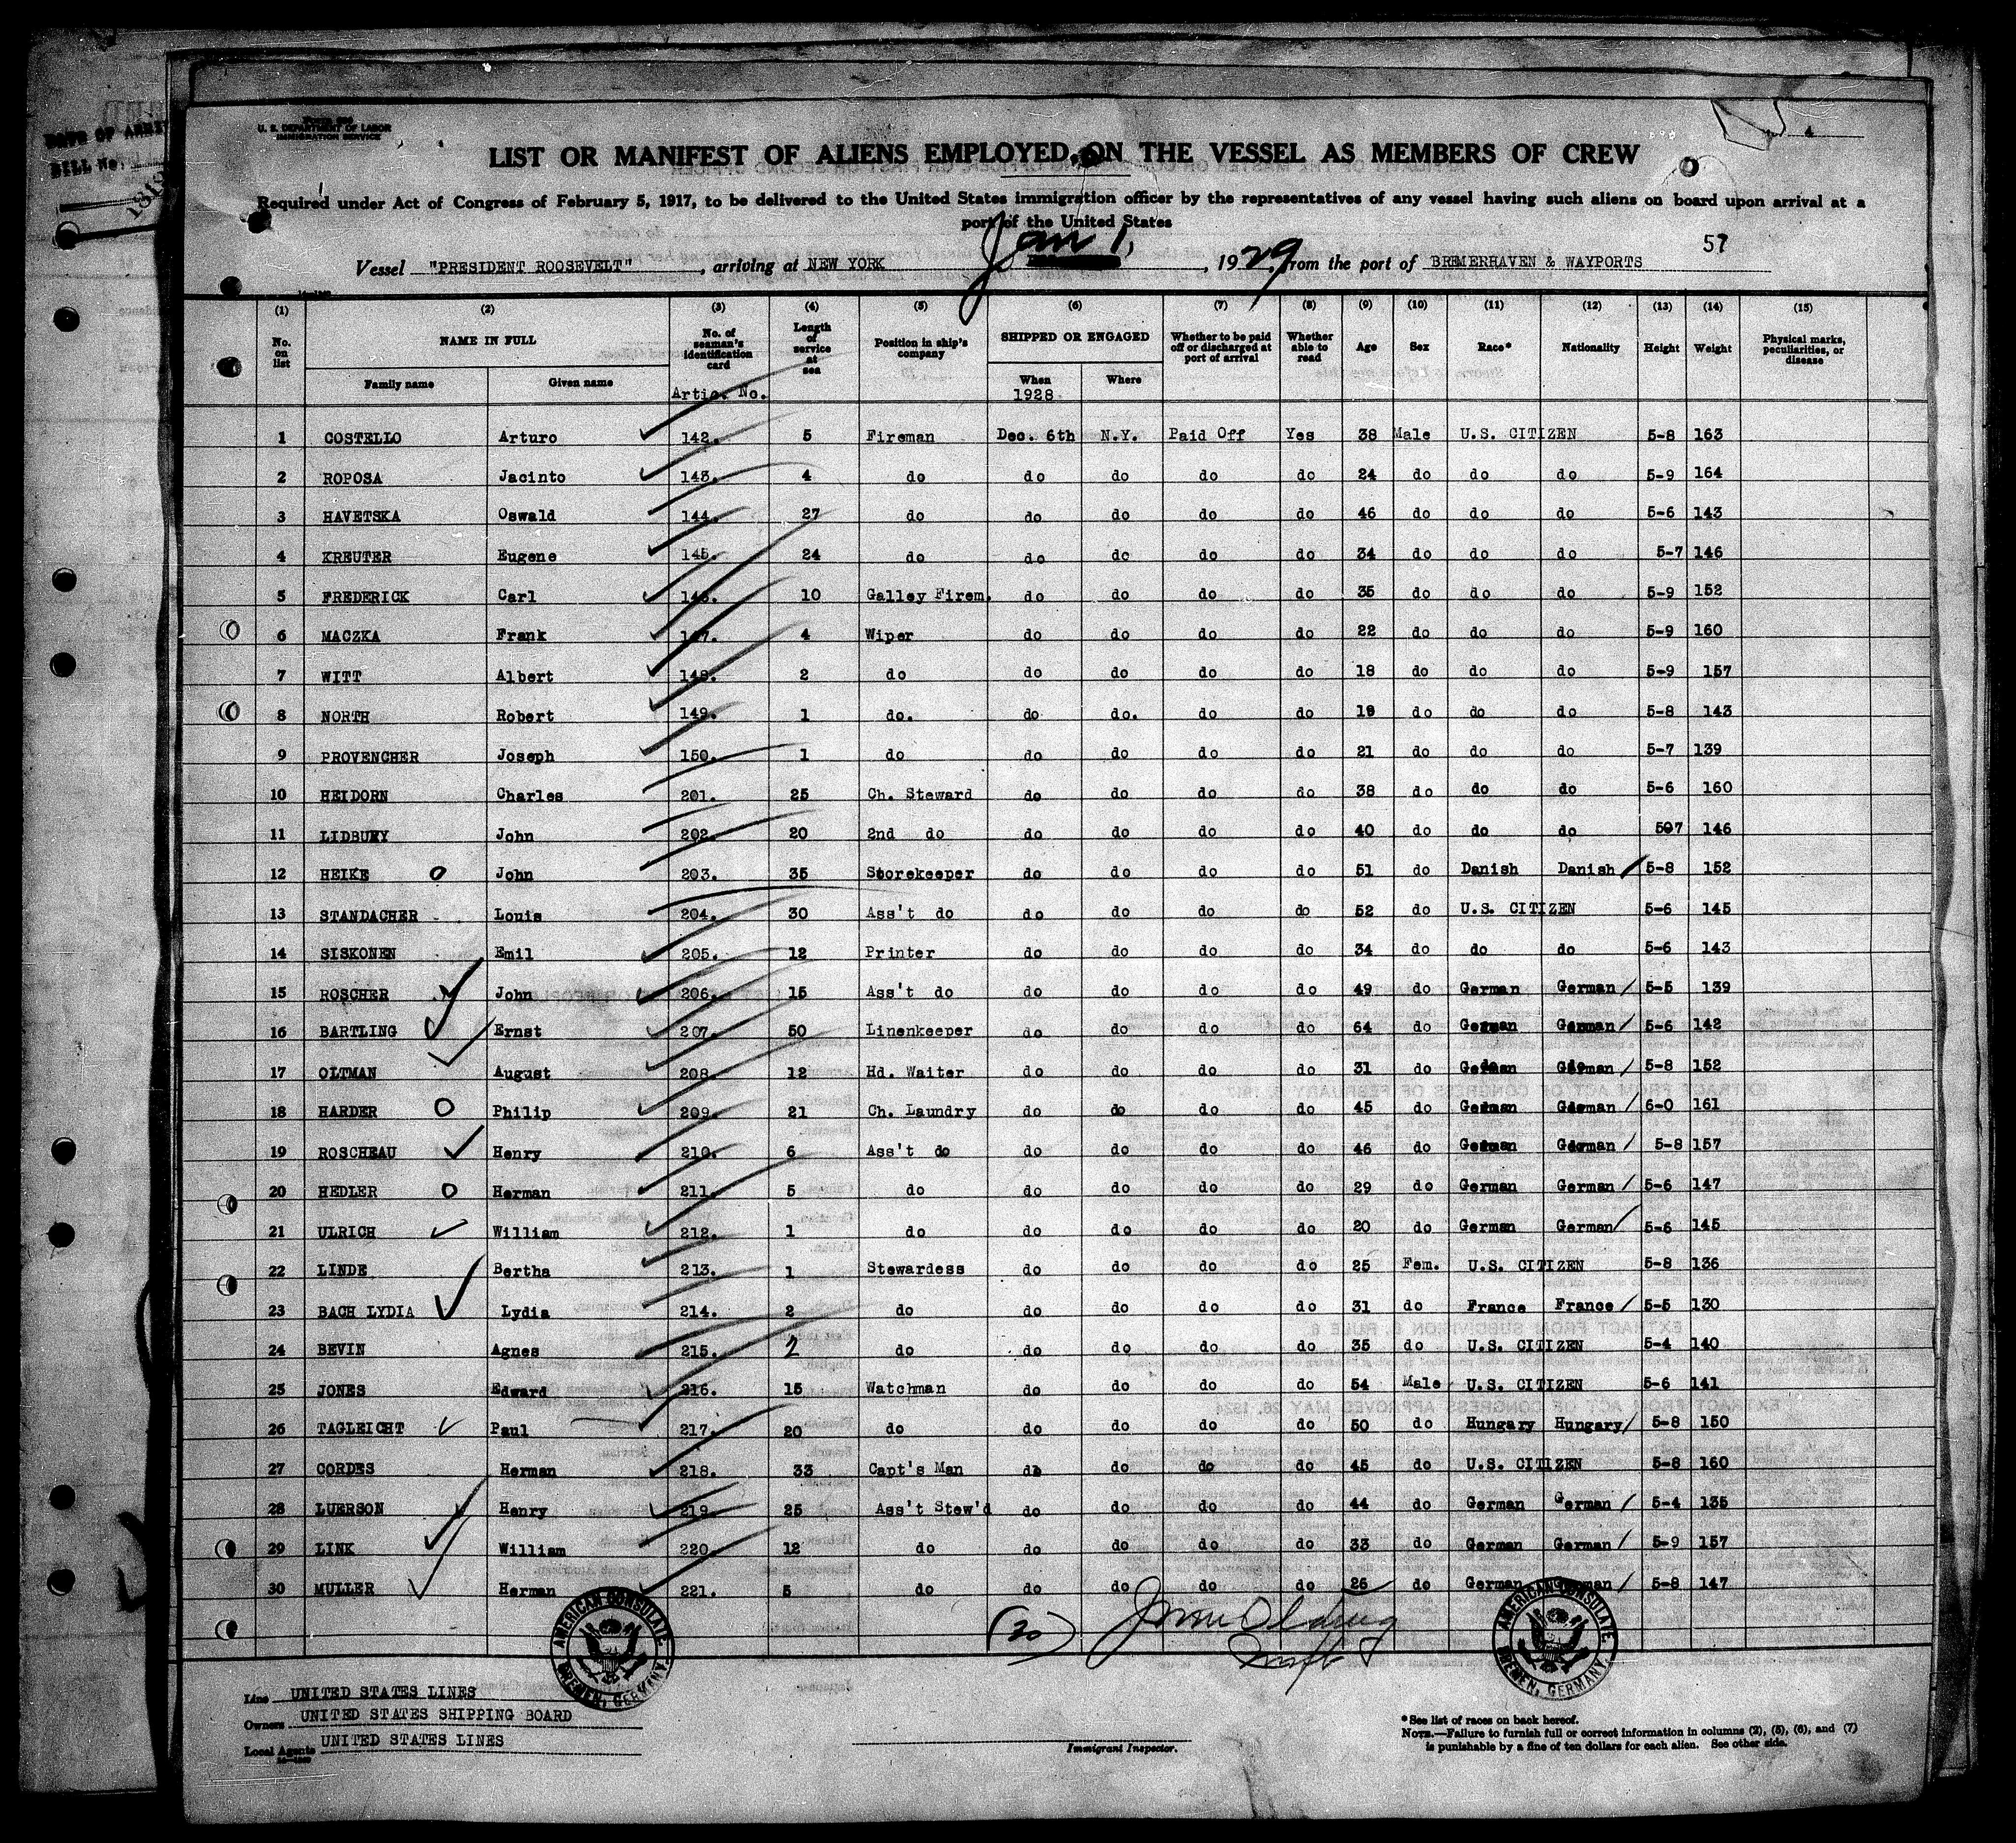 Form 680
U. S. DEPARTMENT OF LABOR
IMMIGRATION SERVICE
4
LIST OR MANIFEST OF ALIENS EMPLOYED ON THE VESSEL AS MEMBERS OF CREW
Required under Act of Congress of February 5, 1917, to be delivered to the United States immigration officer by the representatives of any vessel having such aliens on board upon arrival at a
port of the United States
57
Vessel "PRESIDENT ROOSEVELT", arriving at NEW YORK Jan 1, 1929, from the port of BREMERHAVEN & WAYPORTS
(1) (2) (3) (4) (5) (6) (7) (8) (9) (10) (11) (12) (13) (14) (15)
No. on list NAME IN FULL No. of seaman's identification card Length of service at sea Position in ship's company SHIPPED OR ENGAGED Whether to be paid off or discharged at port of arrival Whether able to read Age Sex Race* Nationality Height Weight Physical marks, peculiarities, or disease
Family name Given name Artic. No. When 1928 Where
1 COSTELLO Arturo 142. 5 Fireman Dec. 6th N.Y. Paid Off Yes 38 Male U.S. CITIZEN 5-8 163
2 ROPOSA Jacinto 143. 4 do do do do do 24 do do do 5-9 164
3 HAVETSKA Oswald 144. 27 do do do do do 46 do do do 5-6 143
4 KREUTER Eugene 145. 24 do do dc do do 34 do do do 5-7 146
5 FREDERICK Carl 146. 10 Galley Firem. do do do do 35 do do do 5-9 152
6 MACZKA Frank 147. 4 Wiper do do do do 22 do do do 5-9 160
7 WITT Albert 148. 2 do do do do do 18 do do do 5-9 157
8 NORTH Robert 149. 1 do. do do. do do 19 do do do 5-8 143
9 PROVENCHER Joseph 150. 1 do do do do do 21 do do do 5-7 139
10 HEIDORN Charles 201. 25 Ch. Steward do do do do 38 do do do 5-6 160
11 LIDBURY John 202. 20 2nd do do do do do 40 do do do 507 146
12 HEIKE O John 203. 35 Storekeeper do do do do 51 do Danish Danish / 5-8 152
13 STANDACHER Louis 204. 30 Ass't do do do do do 52 do U.S. CITIZEN 5-6 145
14 SISKONEN Emil 205. 12 Printer do do do do 34 do do do 5-6 143
15 ROSCHER ✓ John 206. 15 Ass't do do do do do 49 do German German / 5-5 139
16 BARTLING ✓ Ernst 207. 50 Linenkeeper do do do do 64 do German German / 5-6 142
17 OLTMAN ✓ August 208. 12 Hd. Waiter do do do do 31 do German German / 5-8 152
18 HARDER O Philip 209. 21 Ch. Laundry do do do do 45 do German German / 6-0 161
19 ROSCHEAU ✓ Henry 210. 6 Ass't do do do do do 46 do German German / 5-8 157
20 HEDLER O Herman 211. 5 do do do do do 29 do German German / 5-6 147
21 ULRICH ✓ William 212. 1 do do do do do 20 do German German / 5-6 145
22 LINDE Bertha 213. 1 Stewardess do do do do 25 Fem. U.S. CITIZEN 5-8 136
23 BACH LYDIA ✓ Lydia 214. 2 do do do do do 31 do France France / 5-5 130
24 BEVIN Agnes 215. 2 do do do do do 35 do U.S. CITIZEN 5-4 140
25 JONES Edward 216. 15 Watchman do do do do 54 Male U.S. CITIZEN 5-6 141
26 TAGLEICHT ✓ Paul 217. 20 do do do do do 50 do Hungary Hungary / 5-8 150
27 CORDES Herman 218. 33 Capt's Man do do do do 45 do U.S. CITIZEN 5-8 160
28 LUERSON ✓ Henry 219. 25 Ass't Stew'd do do do do 44 do German German / 5-4 135
29 LINK ✓ William 220. 12 do do do do do 33 do German German / 5-9 157
30 MULLER ✓ Herman 221. 5 do do do do do 26 do German German / 5-8 147
(30)
AMERICAN CONSULATE
BREMEN, GERMANY.
AMERICAN CONSULATE
BREMEN, GERMANY.
Line UNITED STATES LINES
Owners UNITED STATES SHIPPING BOARD
Local Agents UNITED STATES LINES
Immigrant Inspector.
*See list of races on back hereof.
NOTE.—Failure to furnish full or correct information in columns (2), (5), (6), and (7)
is punishable by a fine of ten dollars for each alien. See other side.